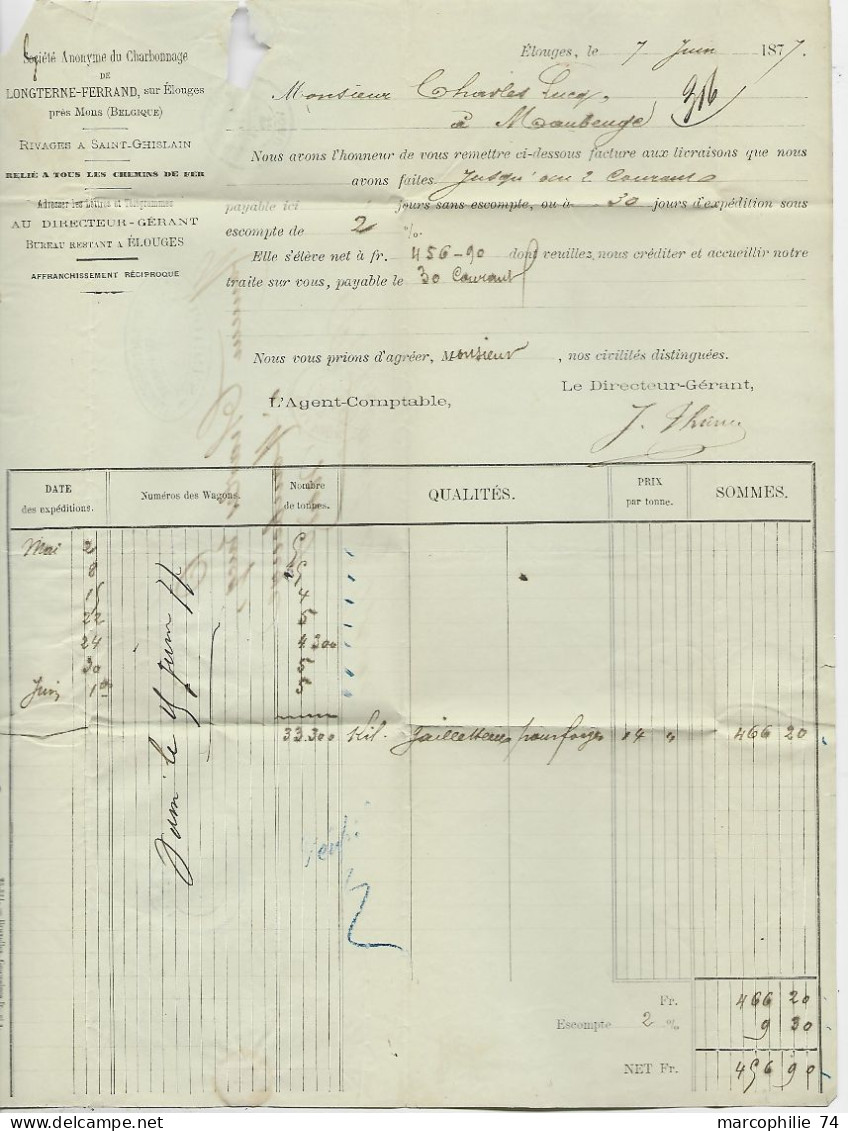 Société Anonyme du Charbonnage
DE
LONGTERNE-FERRAND, sur Élouges
près Mons (BELGIQUE)
RIVAGES A SAINT-GHISLAIN
RELIÉ A TOUS LES CHEMINS DE FER
Adresser les Lettres et Télégrammes
AU DIRECTEUR-GÉRANT
BUREAU RESTANT A ÉLOUGES
AFFRANCHISSEMENT RÉCIPROQUE
Élouges, le 7 Juin 1877.
Monsieur Charles Lucq,
à Maubeuge
316
Nous avons l'honneur de vous remettre ci-dessous facture aux livraisons que nous
avons faites Jusqu'au 2 Courant
payable ici jours sans escompte, ou à 30 jours d'expédition sous
escompte de 2 %.
Elle s'élève net à fr. 456-90 dont veuillez nous créditer et accueillir notre
traite sur vous, payable le 30 Courant
Nous vous prions d'agréer, Monsieur , nos civilités distinguées.
Le Directeur-Gérant,
L'Agent-Comptable,
DATE des expéditions. Numéros des Wagons. Nombre de tonnes. QUALITÉS. PRIX par tonne. SOMMES.
Mai 2 5
8 5
15 4
22 5
24 4.300
30 5
Juin 1er 5
33.300 Kil. Gailletteries pour forges 14 " 466 20
Fr. 466 20
Escompte 2 % 9 30
NET Fr. 456 90
marcophilie 74